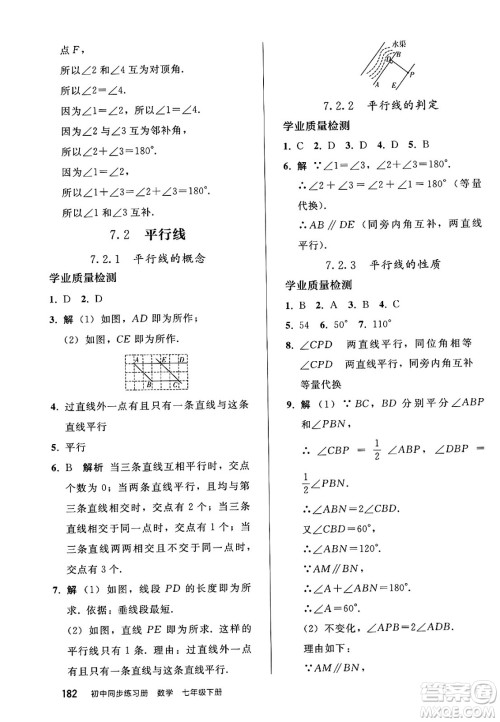 点 F，
所以∠2 和∠4 互为对顶角.
所以∠2＝∠4.
因为∠1 和∠2 互为邻补角，
所以∠1＋∠2＝180°.
因为∠1＝∠3，
所以∠2＋∠3＝180°.
所以∠3 与∠4 互补.
7.2 平行线
7.2.1 平行线的概念
学业质量检测
1. D 2. D
3. 解 （1）如图，AD 即为所作.
（2）如图，CE 即为所作.
A E D
B C
4. 过直线外一点有且只有一条直线与这条
直线平行
5. 平行
6. B 解析 当三条直线互相平行时，交点
个数为 0；当两条直线平行，与第
三条直线相交时，交点有 2 个；当
三条直线两两相交有三个不同交点
时，交点个数为 3；当三条直线相
交于同一点时，交点个数为 1.
7. 解 （1）如图，线段 PD 的长度即为所
求．依据：垂线段最短.
（2）如图，直线 PE 即为所求作的
直线．理由：过直线外一点有且
只有一条直线与这条直线平行.
水渠
B
D
A E P
7.2.2 平行线的判定
学业质量检测
1. C 2. D 3. D 4. D 5. B
6. 解 ∵∠1＝∠3，∠2＋∠1＝180°，
∴∠2＋∠3＝∠2＋∠1＝180°（等量
代换）.
∴AB∥DE（同旁内角互补，两直线
平行）.
7.2.3 平行线的性质
学业质量检测
1. B 2. B 3. A 4. C
5. 54 6. 50° 7. 110°
8. ∠CPD 两直线平行，同位角相等
∠CPD 两直线平行，内错角相等
等量代换
9. 解 （1）∵BC，BD 分别平分∠ABP
和∠PBN，
∴∠CBP＝1/2∠ABP，∠DBP＝
1/2∠PBN.
∴∠ABN＝2∠CBD.
又∵∠CBD＝60°，
∴∠ABN＝120°.
∵AM∥BN，
∴∠A＋∠ABN＝180°.
∴∠A＝60°.
182 初中同步练习册 数学 七年级下册